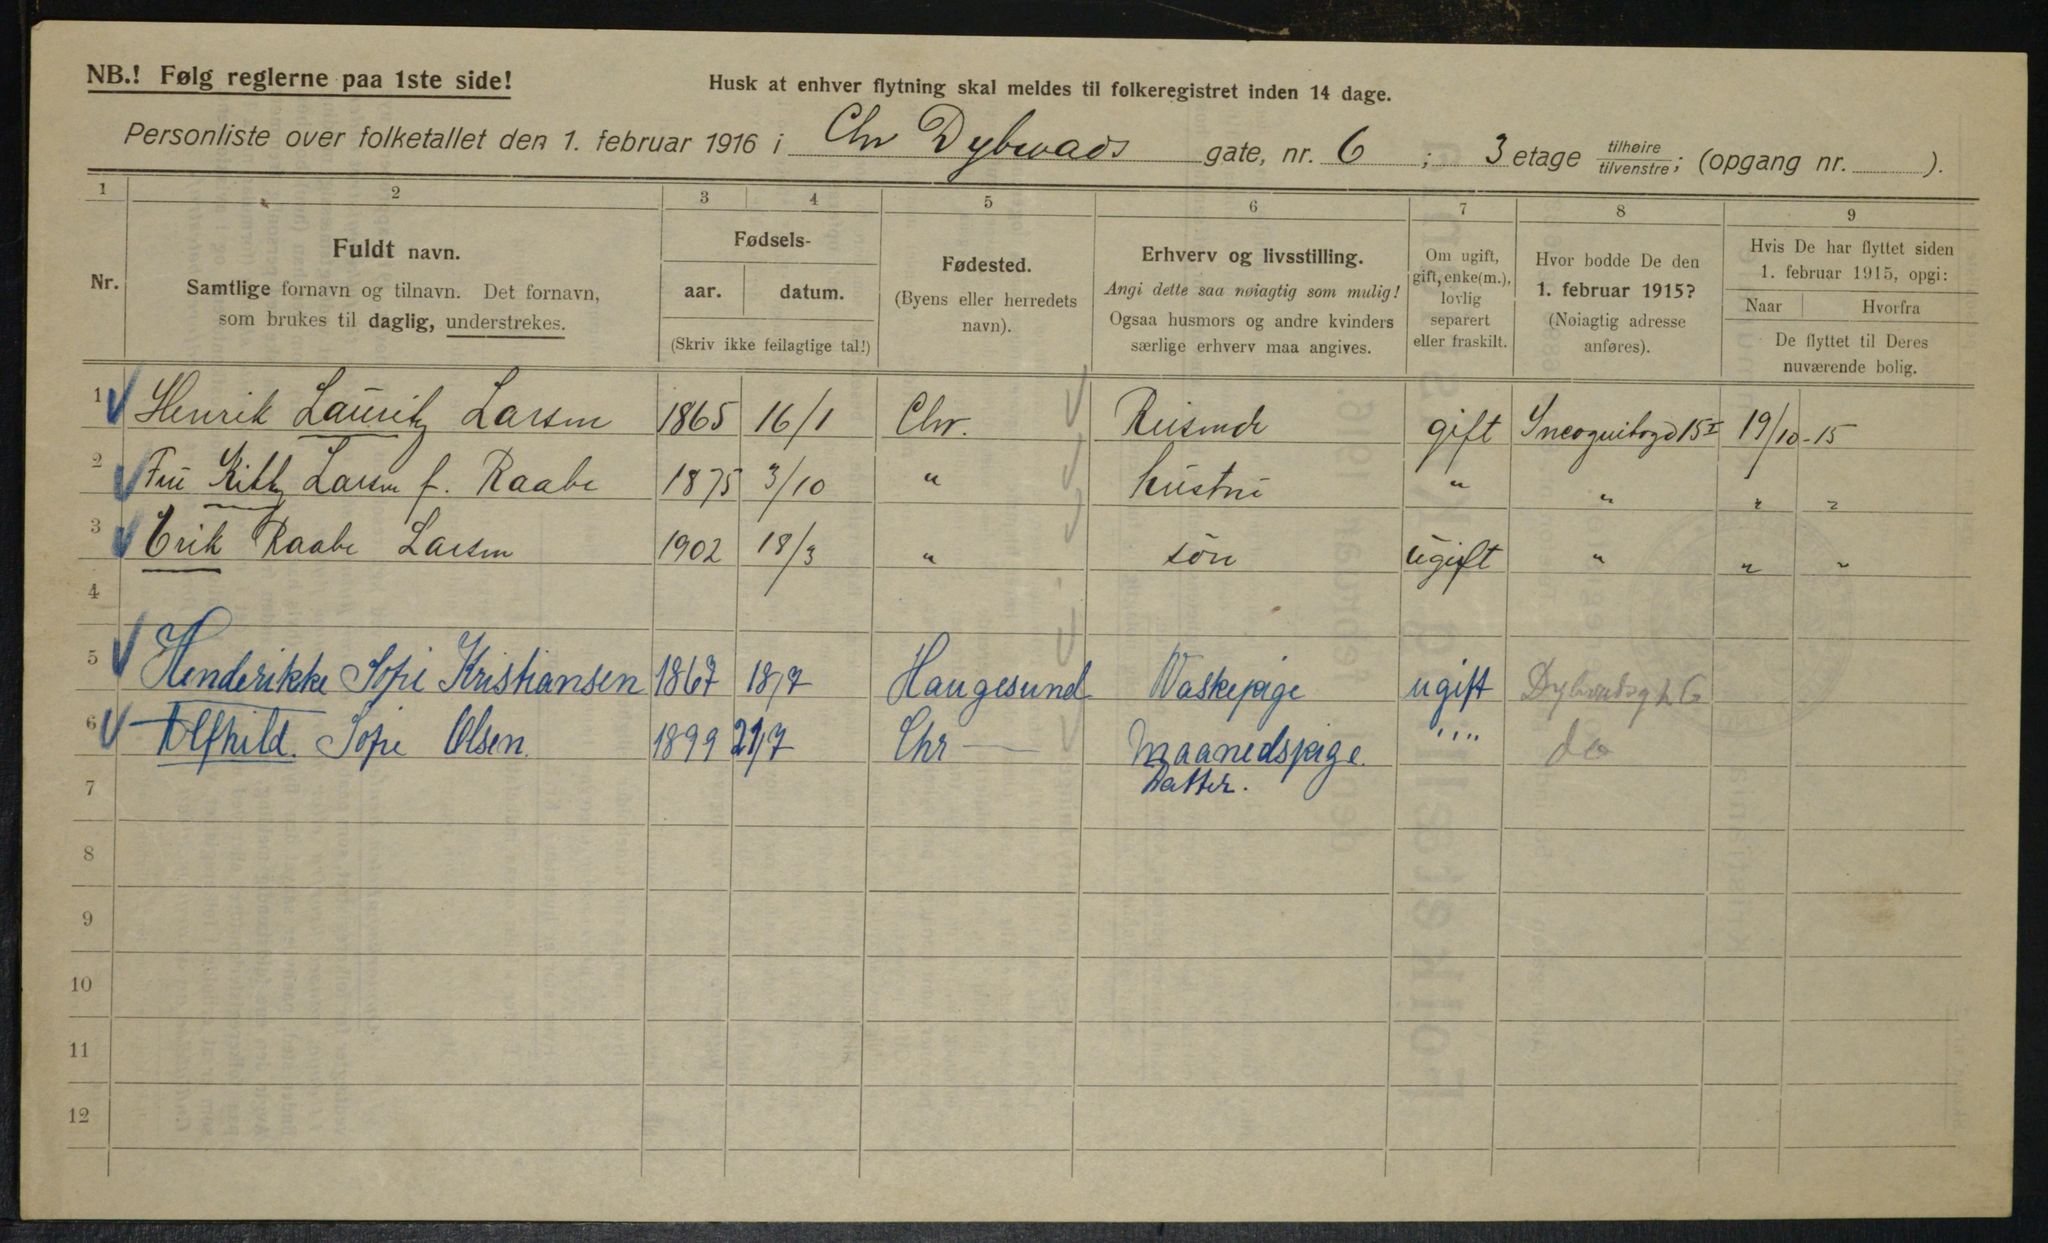 NB.! Følg reglerne paa 1ste side!
Husk at enhver flytning skal meldes til folkeregistret inden 14 dage.
Personliste over folketallet den 1. februar 1916 i Chr Dybwads gate, nr. 6 ; 3 etage tilhøire/tilvenstre; (opgang nr. ).
1 2 3 4 5 6 7 8 9
Nr.
Fuldt navn.
Samtlige fornavn og tilnavn. Det fornavn,
som brukes til daglig, understrekes.
Fødsels-
aar. datum.
(Skriv ikke feilagtige tal!)
Fødested.
(Byens eller herredets
navn).
Erhverv og livsstilling.
Angi dette saa nøiagtig som mulig!
Ogsaa husmors og andre kvinders
særlige erhverv maa angives.
Om ugift,
gift, enke(m.),
lovlig
separert
eller fraskilt.
Hvor bodde De den
1. februar 1915?
(Nøiagtig adresse
anføres).
Hvis De har flyttet siden
1. februar 1915, opgi:
Naar Hvorfra
De flyttet til Deres
nuværende bolig.
1 Henrik Lauritz Larsen 1865 16/1 Chr. Reisende gift Incognitogd 15 I 19/10-15
2 Fru Kitty Larsen f. Raabe 1875 3/10 " hustru " " " "
3 Erik Raabe Larsen 1902 18/3 " søn ugift " " "
4
5 Henderikke Sofie Kristiansen 1867 18/7 Haugesund Vaskepige ugift Dybwadsg 6
6 Alfhild. Sofie Olsen. 1899 21/7 Chr — Maanedspige. """ do
Datter.
7
8
9
10
11
12